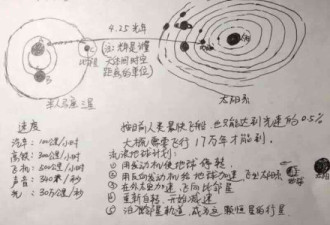 4.25光年
(注:光年是计量
天体间时空
距离的单位)
半人马座三星
太阳系
速度
汽车:100公里/小时
高铁:300公里/小时
飞机:500公里/小时
声音:340米/秒
光:30万公里/秒
按目前人类最快飞船,也只能达到光速的0.5%
大概需要飞行17万年才能到。
流浪地球计划:
① 用发动机使地球停转
② 用反向发动机给地球加速,飞出太阳系
③ 在外太空加速飞向比邻星
④ 重新自转,开始减速
⑤ 泊入比邻星轨道,成为这颗恒星的行星